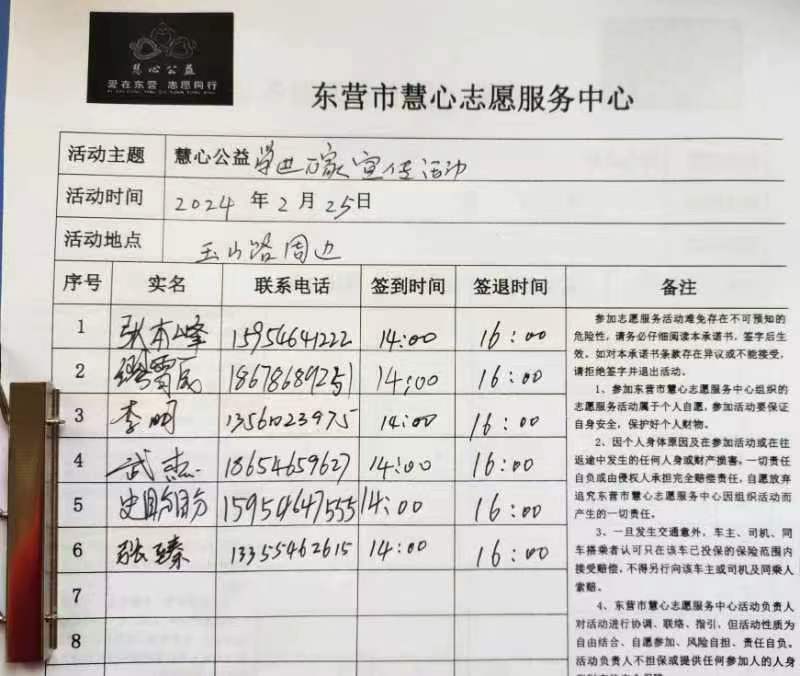 慧心公益
爱在东营 志愿同行
东营市慧心志愿服务中心
活动主题 慧心公益 进万家宣传活动
活动时间 2024 年 2 月 25日
活动地点 玉山路周边
序号 实名 联系电话 签到时间 签退时间 备注
1 张本峰 15954641222 14:00 16:00
2 14:00 16:00
3 李明 13561023975 14:00 16:00
4 武杰 18654659627 14:00 16:00
5 15954647555 14:00 16:00
6 张臻 13355462615 14:00 16:00
7
8
参加志愿服务活动难免存在不可预知的
危险性，请务必仔细阅读本承诺书，签字后生
效。如对本承诺书条款存在异议或不能接受，
请拒绝签字并退出活动。
1、参加东营市慧心志愿服务中心组织的
志愿服务活动属于个人自愿，参加活动要保证
自身安全，保护好个人财物。
2、因个人身体原因及在参加活动或在往
返途中发生的任何人身或财产损害，一切责任
自负或由侵权人承担完全赔偿责任，自愿放弃
追究东营市慧心志愿服务中心因组织活动而
产生的一切责任。
3、一旦发生交通意外，车主、司机、同
车搭乘者认可只在该车已投保的保险范围内
接受赔偿，不得另行向该车主或司机及同乘人
索赔。
4、东营市慧心志愿服务中心活动负责人
对活动进行协调、联络、指引，但活动性质为
自由结合、自愿参加、风险自担、责任自负。
活动负责人不担保或提供任何参加人的人身